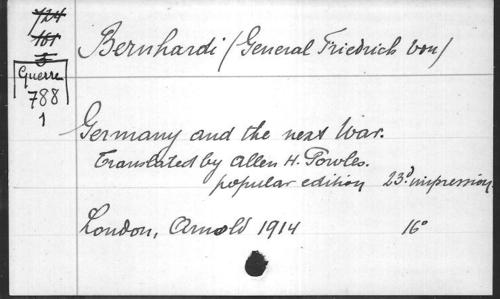 724
161
5
Guerre
788
1
Bernhardi (General Friedrich von)
Germany and the next War.
Translated by Allen H. Powles.
popular edition 23d impression.
London, Arnold 1914 16°